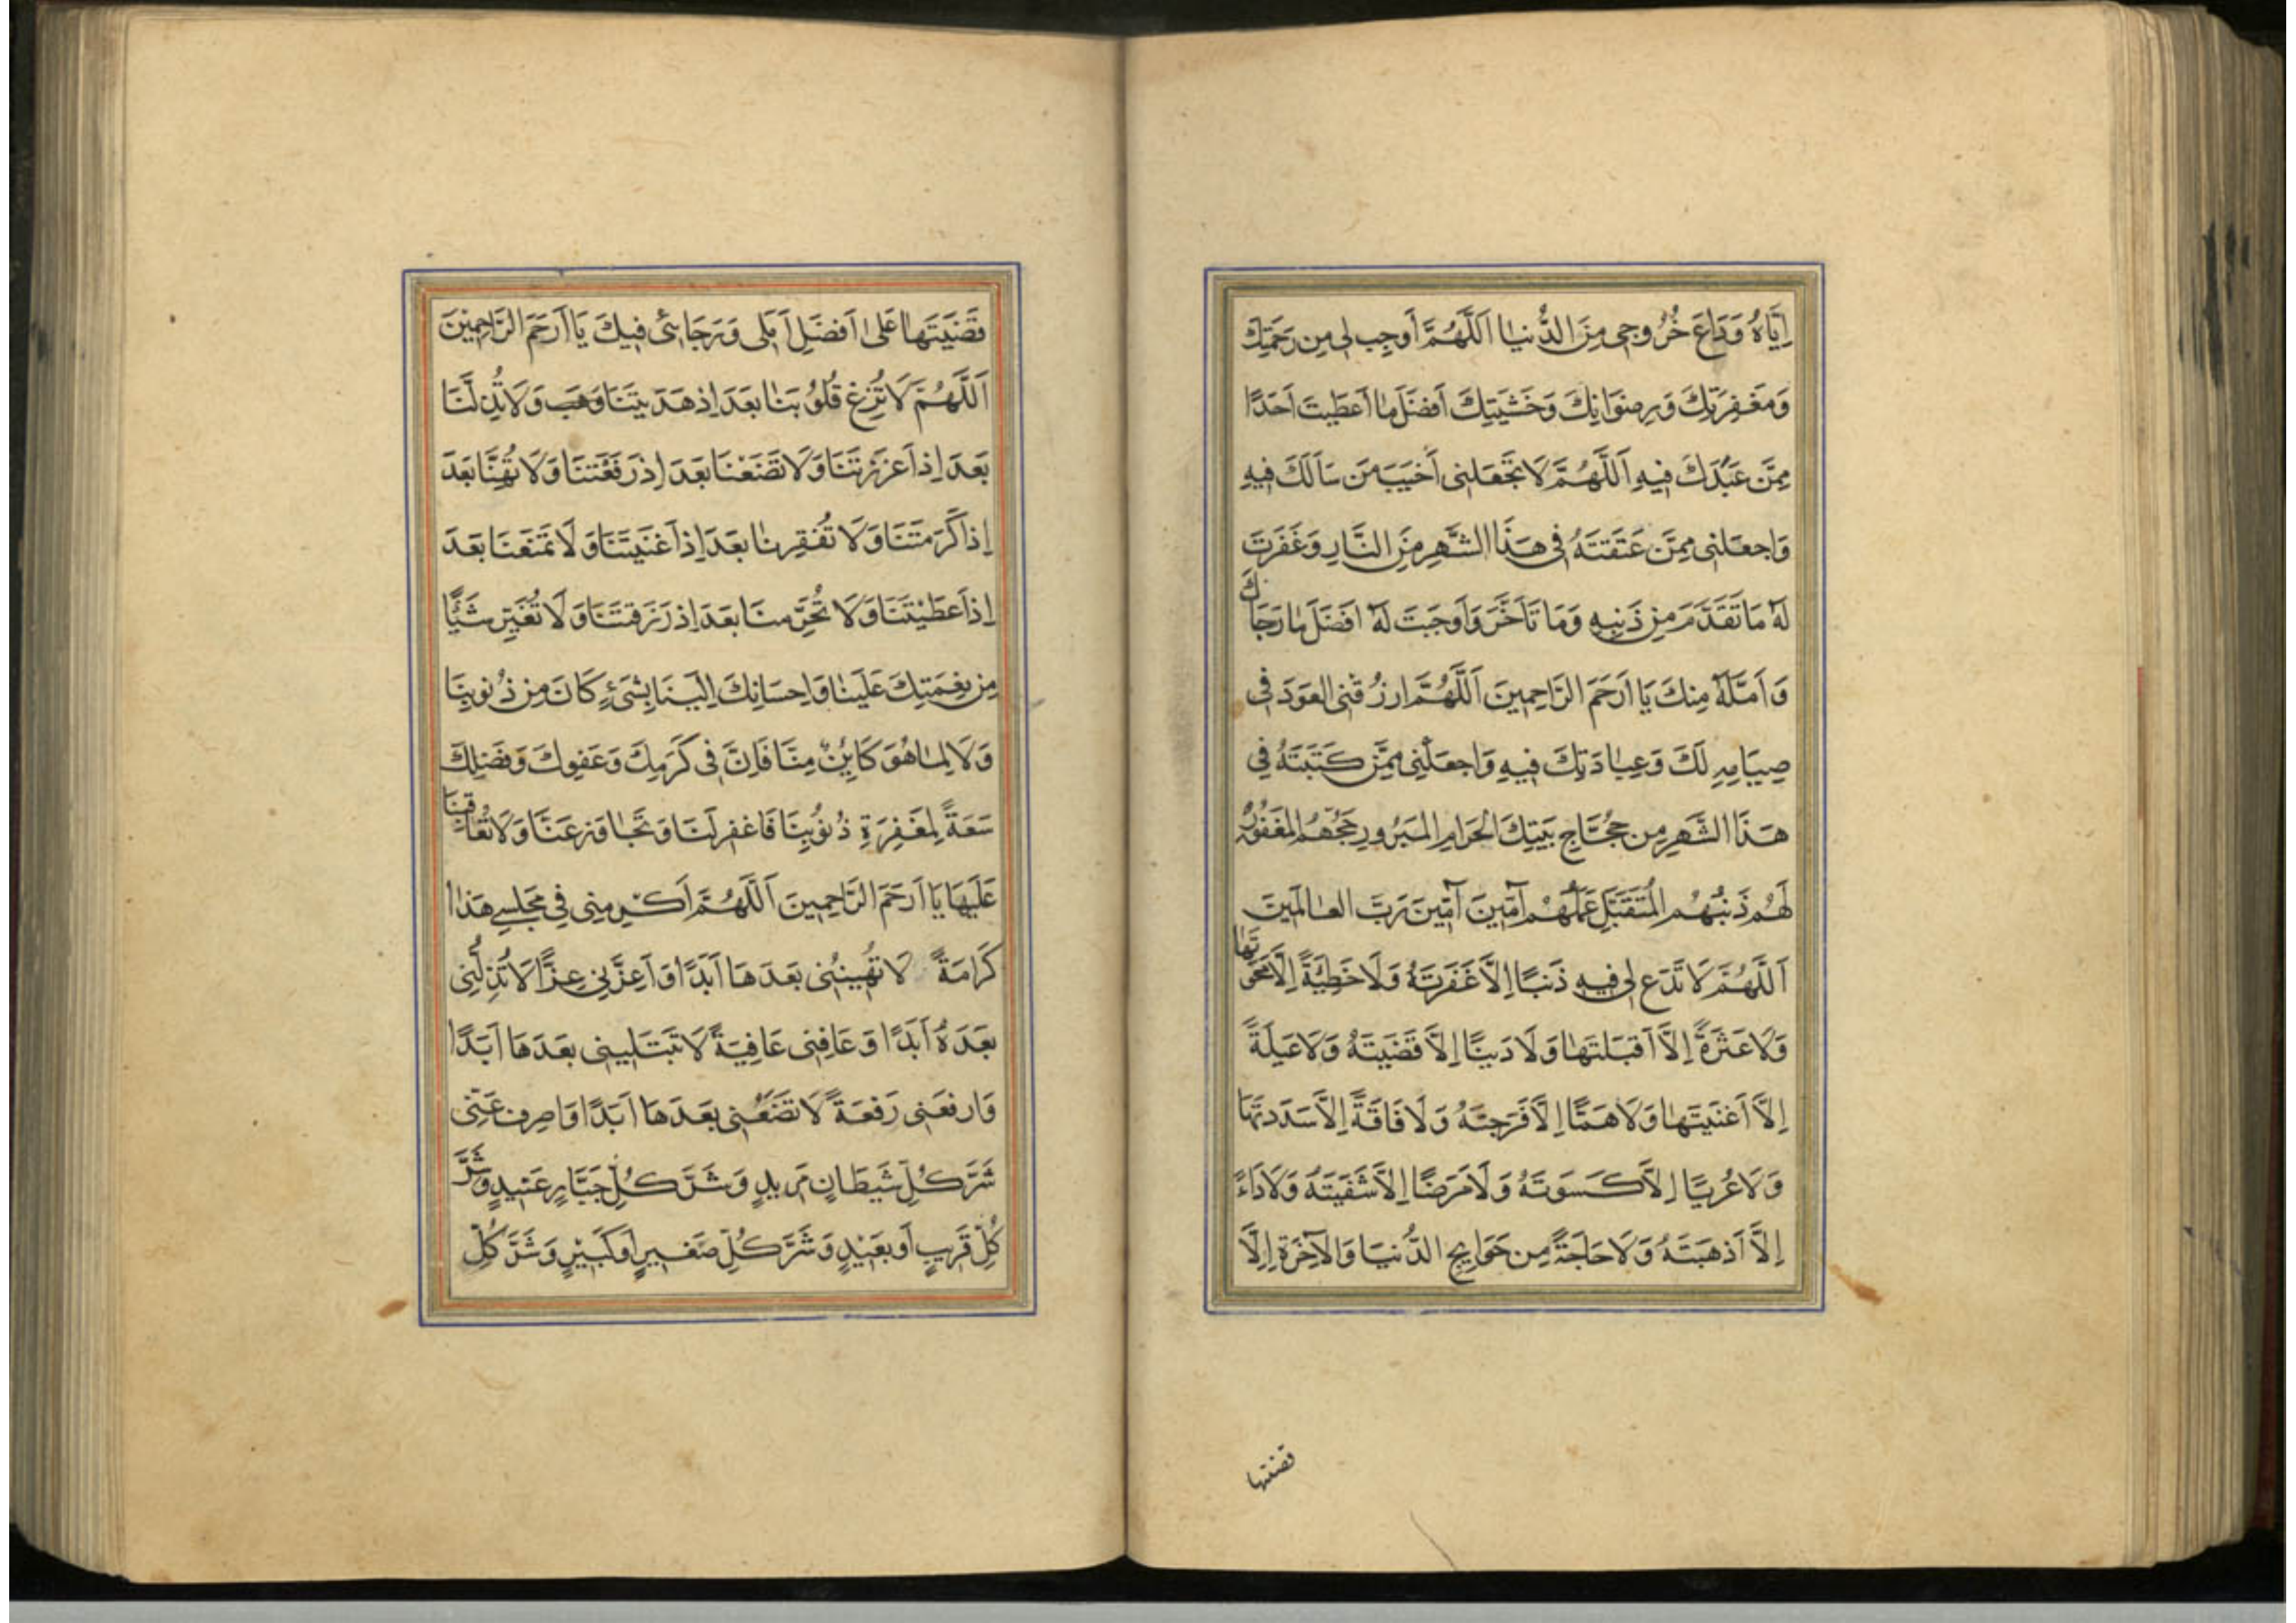 إِيَّاهُ وَدَاعَ خُرُوجِي مِنَ الدُّنْيَا اَللَّهُمَّ أَوْجِبْ لِي مِنْ رَحْمَتِكَ
وَمَغْفِرَتِكَ وَرِضْوَانِكَ وَخَشْيَتِكَ أَفْضَلَ مَا أَعْطَيْتَ أَحَدًا
مِمَّنْ عَبَدَكَ فِيهِ اَللَّهُمَّ لَا تَجْعَلْنِي أَخْيَبَ مَنْ سَأَلَكَ فِيهِ
وَاجْعَلْنِي مِمَّنْ عَتَقْتَهُ فِي هَذَا الشَّهْرِ مِنَ النَّارِ وَغَفَرْتَ
لَهُ مَا تَقَدَّمَ مِنْ ذَنْبِهِ وَمَا تَأَخَّرَ وَأَوْجَبْتَ لَهُ أَفْضَلَ مَا رَجَاكَ
وَأَمَّلَهُ مِنْكَ يَا أَرْحَمَ الرَّاحِمِينَ اَللَّهُمَّ ارْزُقْنِي الْعَوْدَ فِي
صِيَامِهِ لَكَ وَعِبَادَتِكَ فِيهِ وَاجْعَلْنِي مِمَّنْ كَتَبْتَهُ فِي
هَذَا الشَّهْرِ مِنْ حُجَّاجِ بَيْتِكَ الْحَرَامِ الْمَبْرُورِ حَجُّهُمُ الْمَغْفُورِ
لَهُمْ ذَنْبُهُمْ الْمُتَقَبَّلِ عَمَلُهُمْ آمِينَ آمِينَ رَبَّ الْعَالَمِينَ
اَللَّهُمَّ لَا تَدَعْ لِي فِيهِ ذَنْبًا إِلَّا غَفَرْتَهُ وَلَا خَطِيئَةً إِلَّا مَحَوْتَهَا
وَلَا عَثْرَةً إِلَّا أَقْبَلْتَهَا وَلَا دَيْنًا إِلَّا قَضَيْتَهُ وَلَا عَيْلَةً
إِلَّا أَغْنَيْتَهَا وَلَا هَمًّا إِلَّا فَرَّجْتَهُ وَلَا فَاقَةً إِلَّا سَدَدْتَهَا
وَلَا عُرْيًا إِلَّا كَسَوْتَهُ وَلَا مَرَضًا إِلَّا شَفَيْتَهُ وَلَا دَاءً
إِلَّا أَذْهَبْتَهُ وَلَا حَاجَةً مِنْ حَوَايِجِ الدُّنْيَا وَالْآخِرَةِ إِلَّا
قضيتها
قَضَيْتَهَا عَلَى أَفْضَلِ أَمَلِي وَرَجَائِي فِيكَ يَا أَرْحَمَ الرَّاحِمِينَ
اَللَّهُمَّ لَا تُزِغْ قُلُوبَنَا بَعْدَ إِذْ هَدَيْتَنَا وَهَبْ وَلَا تُذِلَّنَا
بَعْدَ إِذْ أَعْزَزْتَنَا وَلَا تَضَعْنَا بَعْدَ إِذْ رَفَعْتَنَا وَلَا تُهِنَّا بَعْدَ
إِذْ أَكْرَمْتَنَا وَلَا تُفْقِرْنَا بَعْدَ إِذْ أَغْنَيْتَنَا وَلَا تَمْنَعْنَا بَعْدَ
إِذْ أَعْطَيْتَنَا وَلَا تُحَرِّمْنَا بَعْدَ إِذْ رَزَقْتَنَا وَلَا تُغَيِّرْ شَيْئًا
مِنْ نِعْمَتِكَ عَلَيْنَا وَإِحْسَانِكَ إِلَيْنَا بِشَيْءٍ كَانَ مِنْ ذُنُوبِنَا
وَلَا لِمَا هُوَ كَايِنٌ مِنَّا فَإِنَّ فِي كَرَمِكَ وَعَفْوِكَ وَفَضْلِكَ
سَعَةً لِمَغْفِرَةِ ذُنُوبِنَا فَاغْفِرْ لَنَا وَتَجَاوَزْ عَنَّا وَلَا تُعَاقِبْنَا
عَلَيْهَا يَا أَرْحَمَ الرَّاحِمِينَ اَللَّهُمَّ أَكْرِمْنِي فِي مَجْلِسِي هَذَا
كَرَامَةً لَا تُهِينُنِي بَعْدَهَا أَبَدًا وَأَعِزَّنِي عِزًّا لَا تُذِلُّنِي
بَعْدَهُ أَبَدًا وَعَافِنِي عَافِيَةً لَا تَبْتَلِينِي بَعْدَهَا أَبَدًا
وَارْفَعْنِي رَفْعَةً لَا تَضَعُنِي بَعْدَهَا أَبَدًا وَاصْرِفْ عَنِّي
شَرَّ كُلِّ شَيْطَانٍ مَرِيدٍ وَشَرَّ كُلِّ جَبَّارٍ عَنِيدٍ وَشَرَّ
كُلِّ قَرِيبٍ أَوْ بَعِيدٍ وَشَرَّ كُلِّ صَغِيرٍ أَوْ كَبِيرٍ وَشَرَّ كُلِّ